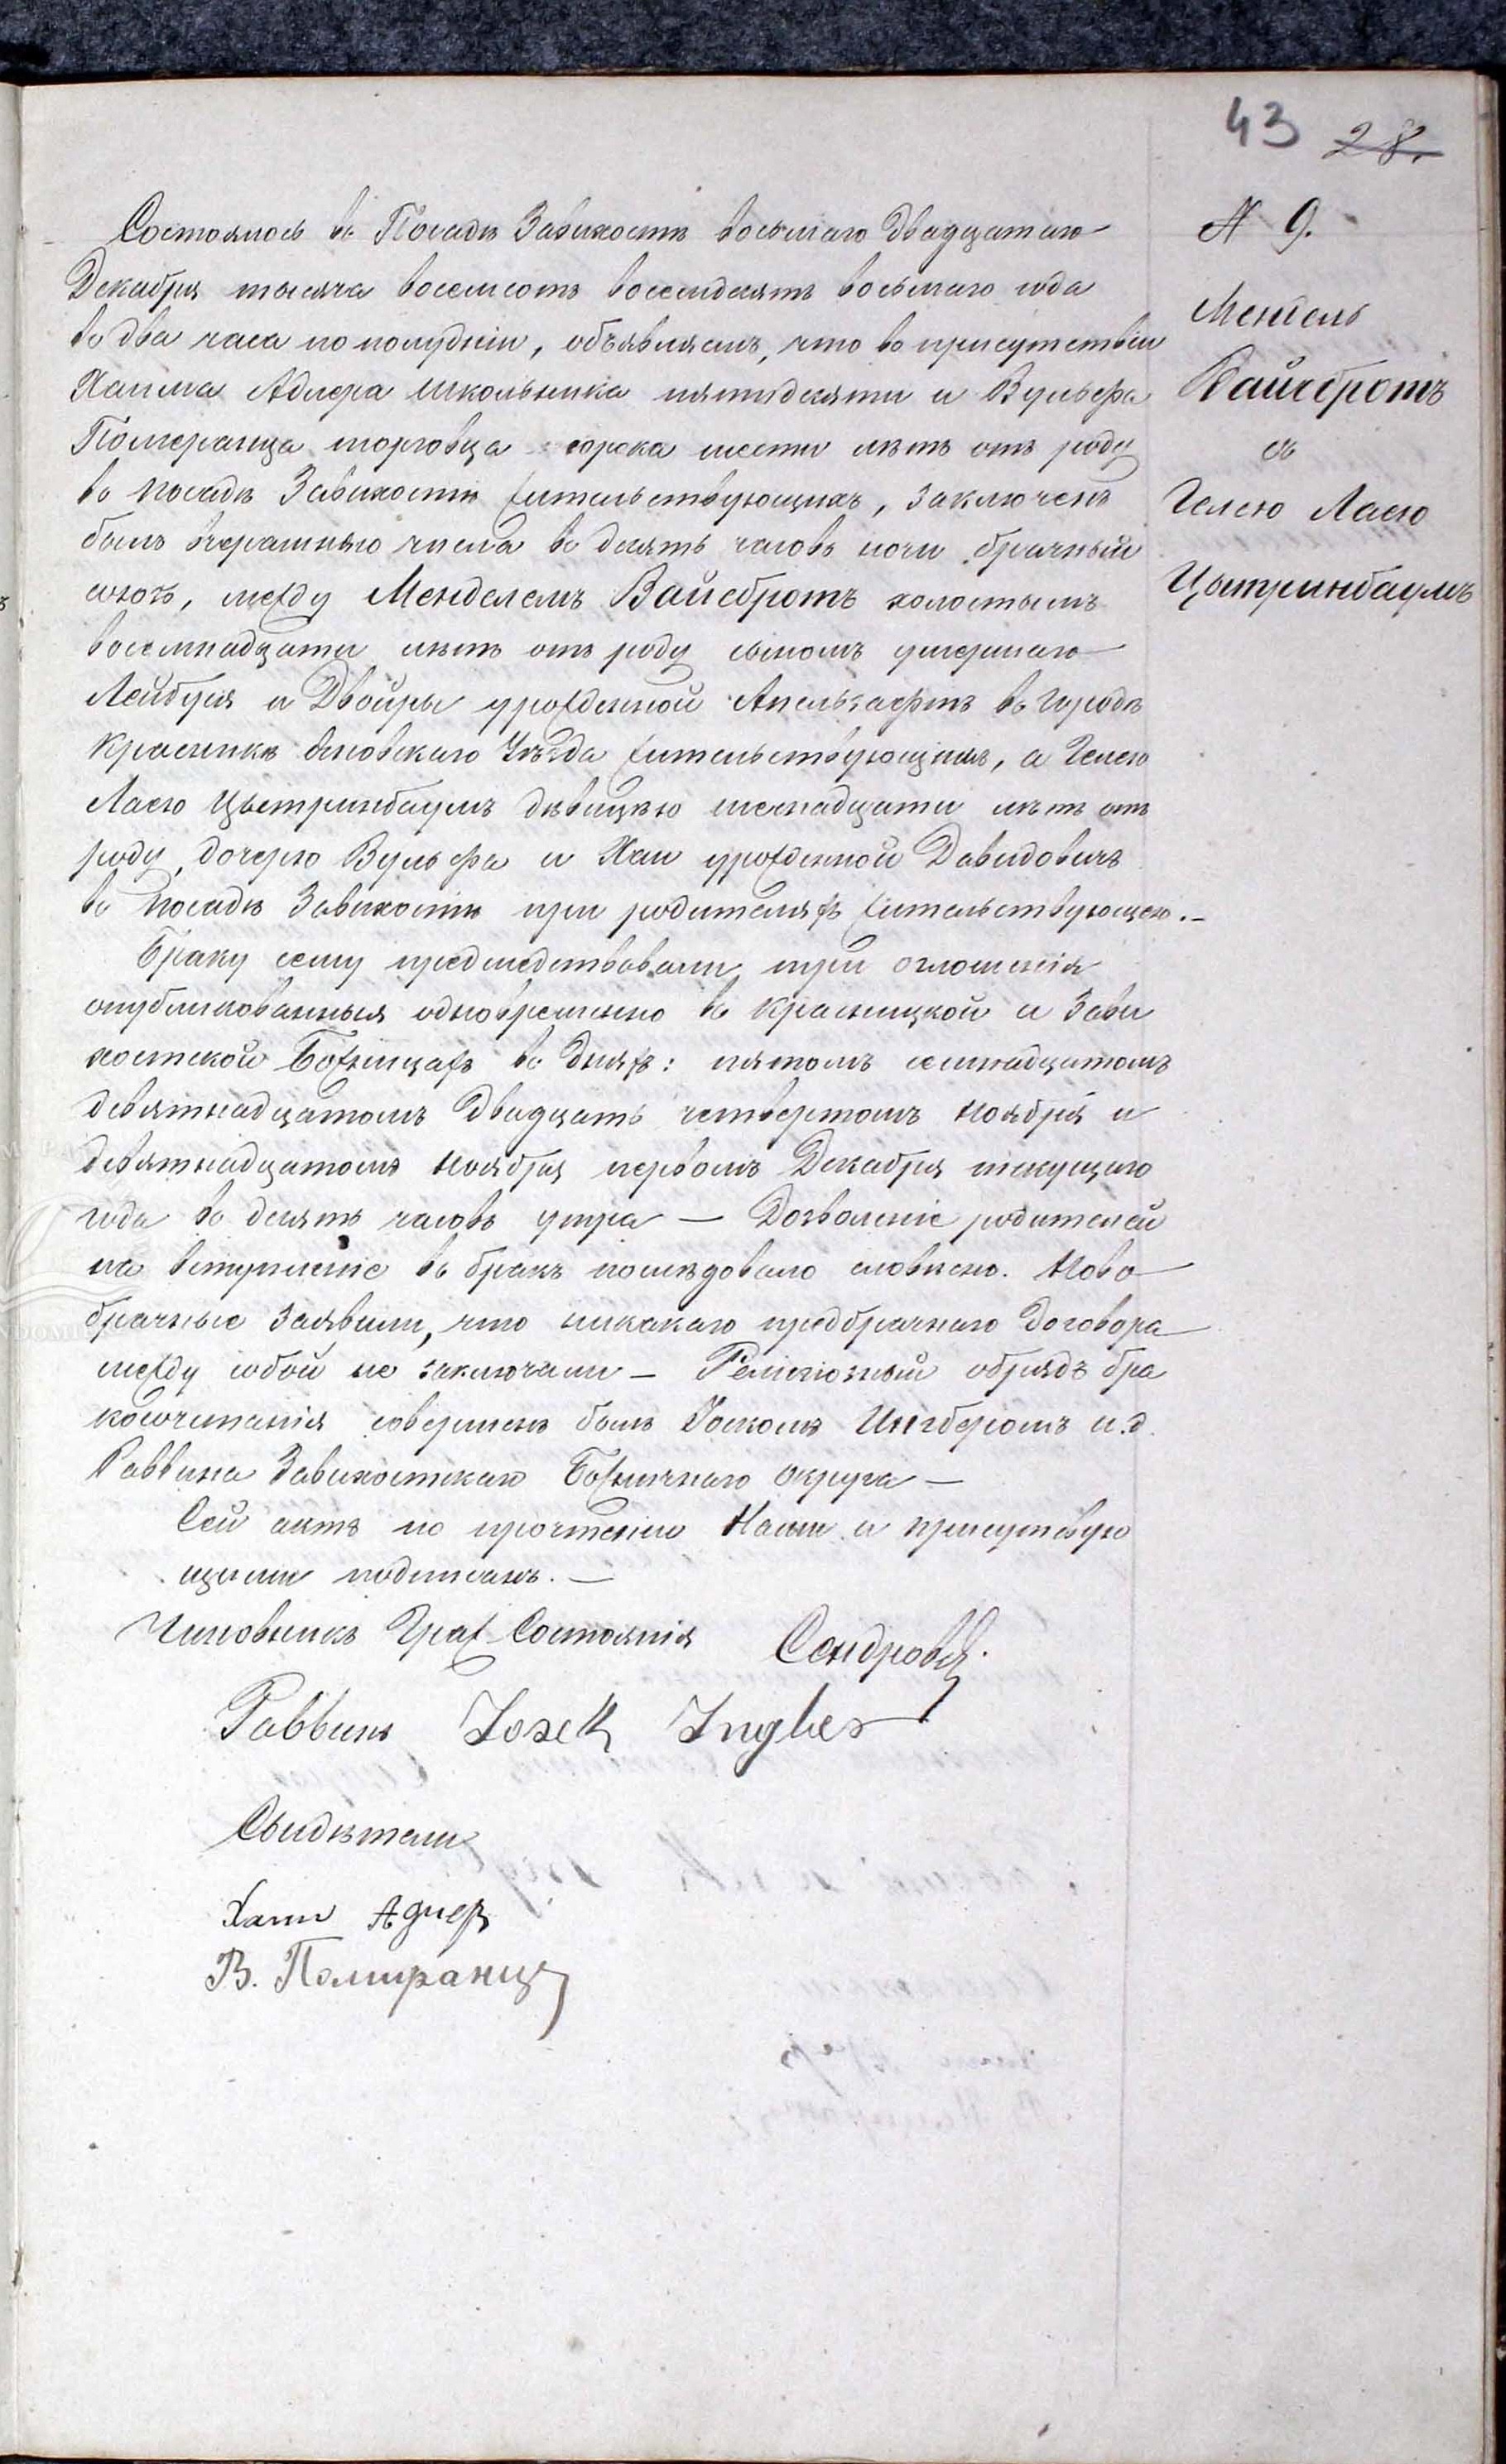 43 28.
№ 9.
Мендель
Вайсбротъ
съ
Гелею Ласею
Цытринбаумъ
Состоялось въ Посадѣ Завихостѣ восьмаго двадцатаго
Декабря тысяча восемсотъ восемдесятъ восьмаго года
въ два часа по полудніи, объявляемъ, что въ присутствіи
Хаима Адлера школьника пятидесяти и Вульфа
Померанца торговца сорока шести лѣтъ отъ роду
въ посадѣ Завихостѣ жительствующихъ, заключенъ
былъ вчерашняго числа въ десять часовъ ночи брачный
союзъ, между Менделемъ Вайсбротъ холостымъ
восемнадцати лѣтъ отъ роду сыномъ умершаго
Лейбуся и Двойры урожденной Апельзафтъ въ городѣ
Красникѣ Яновскаго Уѣзда жительствующимъ, а Гелею
Ласею Цытринбаумъ дѣвицею шеснадцати лѣтъ отъ
роду, дочерью Вульфа и Хаи урожденной Давидовичъ
въ посадѣ Завихостѣ при родителяхъ жительствующею.–
Браку сему предшедствовали три оглошенія
опубликованныя одновремѣнно въ Красницкой и Зави
хостской Божницахъ въ дняхъ: пятомъ семнадцатомъ
девятнадцатомъ двадцать четвертомъ Ноября и
девятнадцатомъ Ноября первомъ Декабря текущаго
года въ десять часовъ утра — Дозволеніе родителей
на вступленіе въ бракъ послѣдовало словѣсно. Ново
брачные заявили, что никакаго предбрачнаго договора
между собой не заключали – Религіозный обрядъ бра
косочетанія совершенъ былъ Іоскомъ Ингберомъ и.д.
Раввина Завихостскаго Божничнаго Округа —
Сей актъ по прочтеніи Нами и присутствую
щими подписанъ. —
Чиновникъ Граж Состоянія
Раввинъ Josek Ingber
Свидѣтели
Хаим Адлер
В. Помиранц